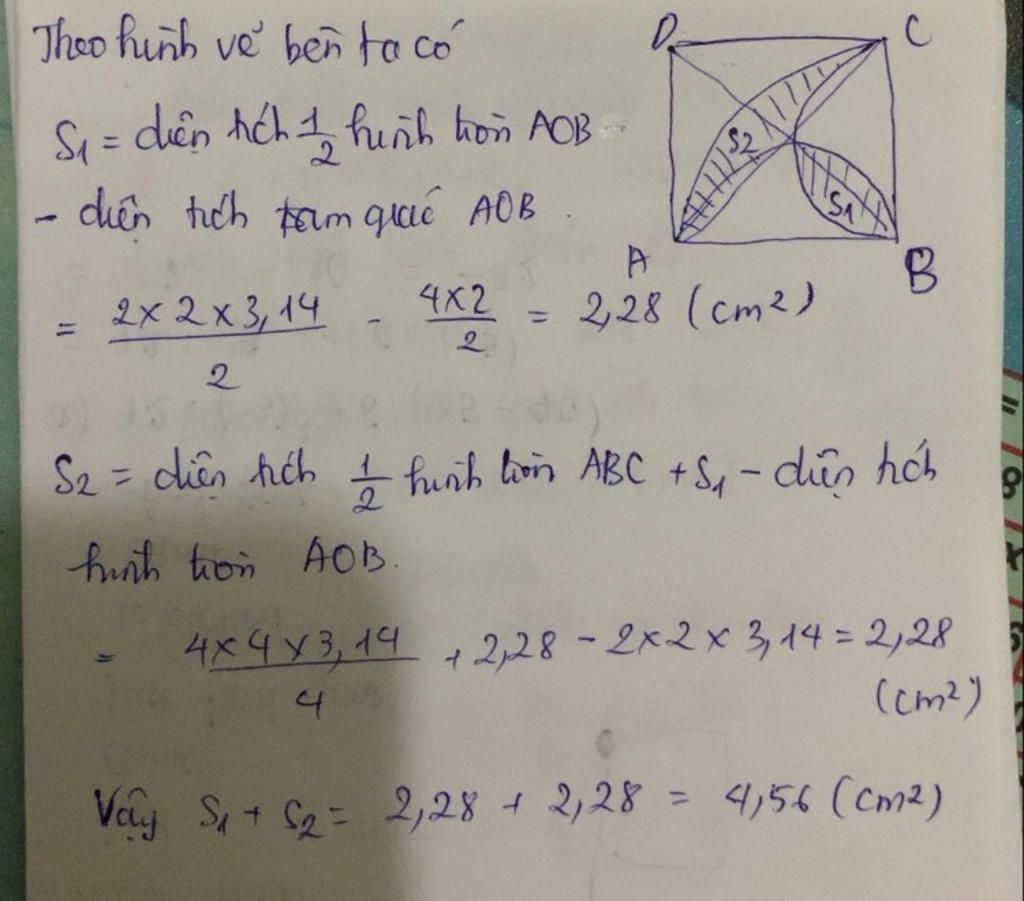 Theo hình vẽ bên ta có
D
C
S1 = diện tích 1/2 hình tròn AOB
- diện tích tam giác AOB.
S2
S1
A
B
= (2 x 2 x 3,14)/2 - (4 x 2)/2 = 2,28 (cm2)
S2 = diện tích 1/2 hình tròn ABC + S1 - diện tích
hình tròn AOB.
= (4 x 4 x 3,14)/4 + 2,28 - 2 x 2 x 3,14 = 2,28
(cm2)
Vậy S1 + S2 = 2,28 + 2,28 = 4,56 (cm2)